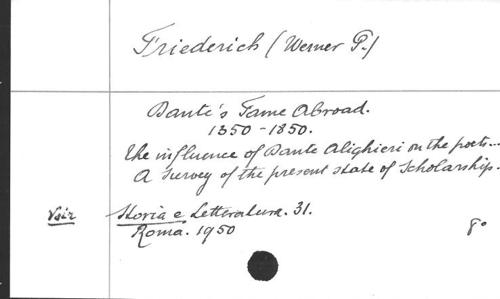 Friederich (Werner P.)
Dante's Fame Abroad.
1350-1850.
The influence of Dante Alighieri on the poets...
A Survey of the present state of Scholarship.
Voir Storia e Letteratura. 31.
Roma. 1950 8°